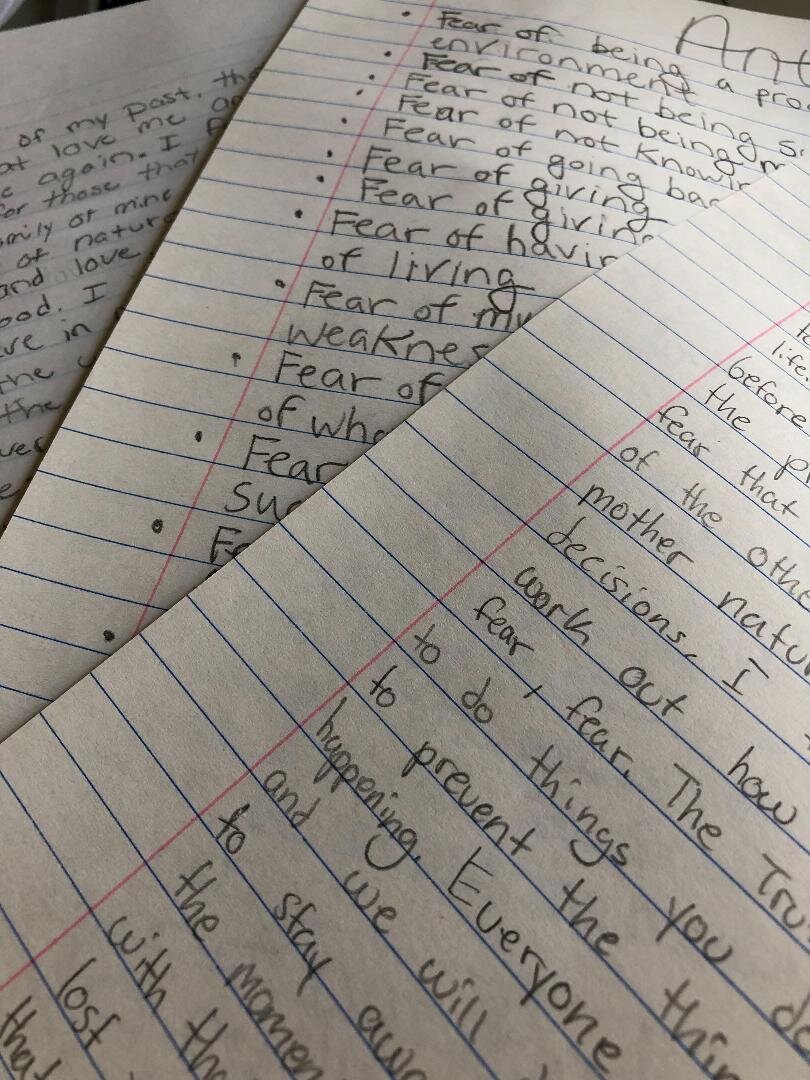 of my past, the
at love me
e again. I
for those that
mily of mine
of nature
and love
ood. I
ve in
the
the
Ant
Fear of being a pro
environment
Fear of not being s
Fear of not being
Fear of not knowin
Fear of going bac
Fear of giving
Fear of givin
Fear of havin
of living
Fear of my
weaknes
Fear of
of who
Fear
suc
Fe
to
life.
before
the pr
fear that
of the othe
mother natu
decisions. I
work out how
fear, fear. The Tru
to do things you do
to prevent the thin
happening. Everyone
and we will
to stay awa
the momen
with tha
lost
that